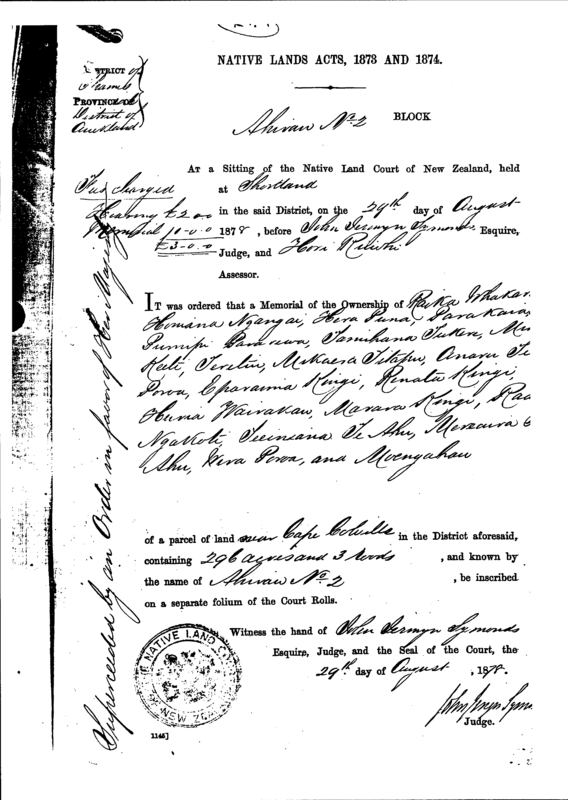 NATIVE LANDS ACTS, 1873 AND 1874.
DISTRICT of
PROVINCE of
District of
Auckland
Ahirau No 2 BLOCK
AT a Sitting of the Native Land Court of New Zealand, held
at Shortland
in the said District, on the 29th day of August
1878, before John Jermyn Symonds Esquire,
Judge, and Hori Ririhi
Assessor.
Fees charged
Hearing £2.0.0
Memorial 1.0.0
£3.0.0
IT was ordered that a Memorial of the Ownership of
Hera Puna,
Tamihana Tukere,
Keti, Mikaera Anaru Te
Poroa, Eparaima Kingi, Renata Kingi,
Huria Wairakau, Kingi,
Ngakoti, Te Ahu,
Ahu, Wera Poroa, and Moengahau
of a parcel of land near Cape Colville in the District aforesaid,
containing 296 acres and 3 roods, and known by
the name of Ahirau No 2, be inscribed
on a separate folium of the Court Rolls.
Witness the hand of John Jermyn Symonds
Esquire, Judge, and the Seal of the Court, the
29th day of August, 1878.
Judge.
THE NATIVE LAND COURT
NEW ZEALAND
1145]
Superceeded by an Order in favor of Her Majesty